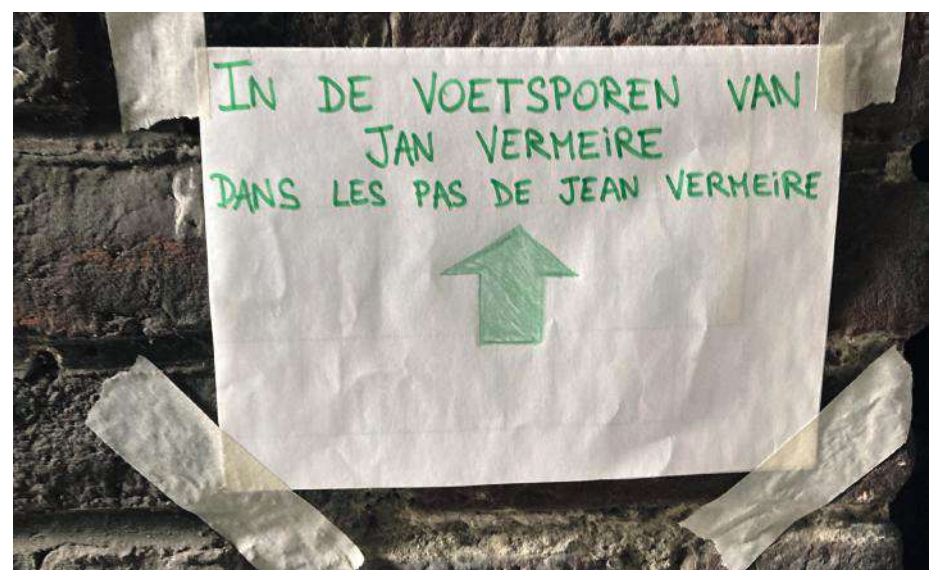 IN DE VOETSPOREN VAN
JAN VERMEIRE
DANS LES PAS DE JEAN VERMEIRE